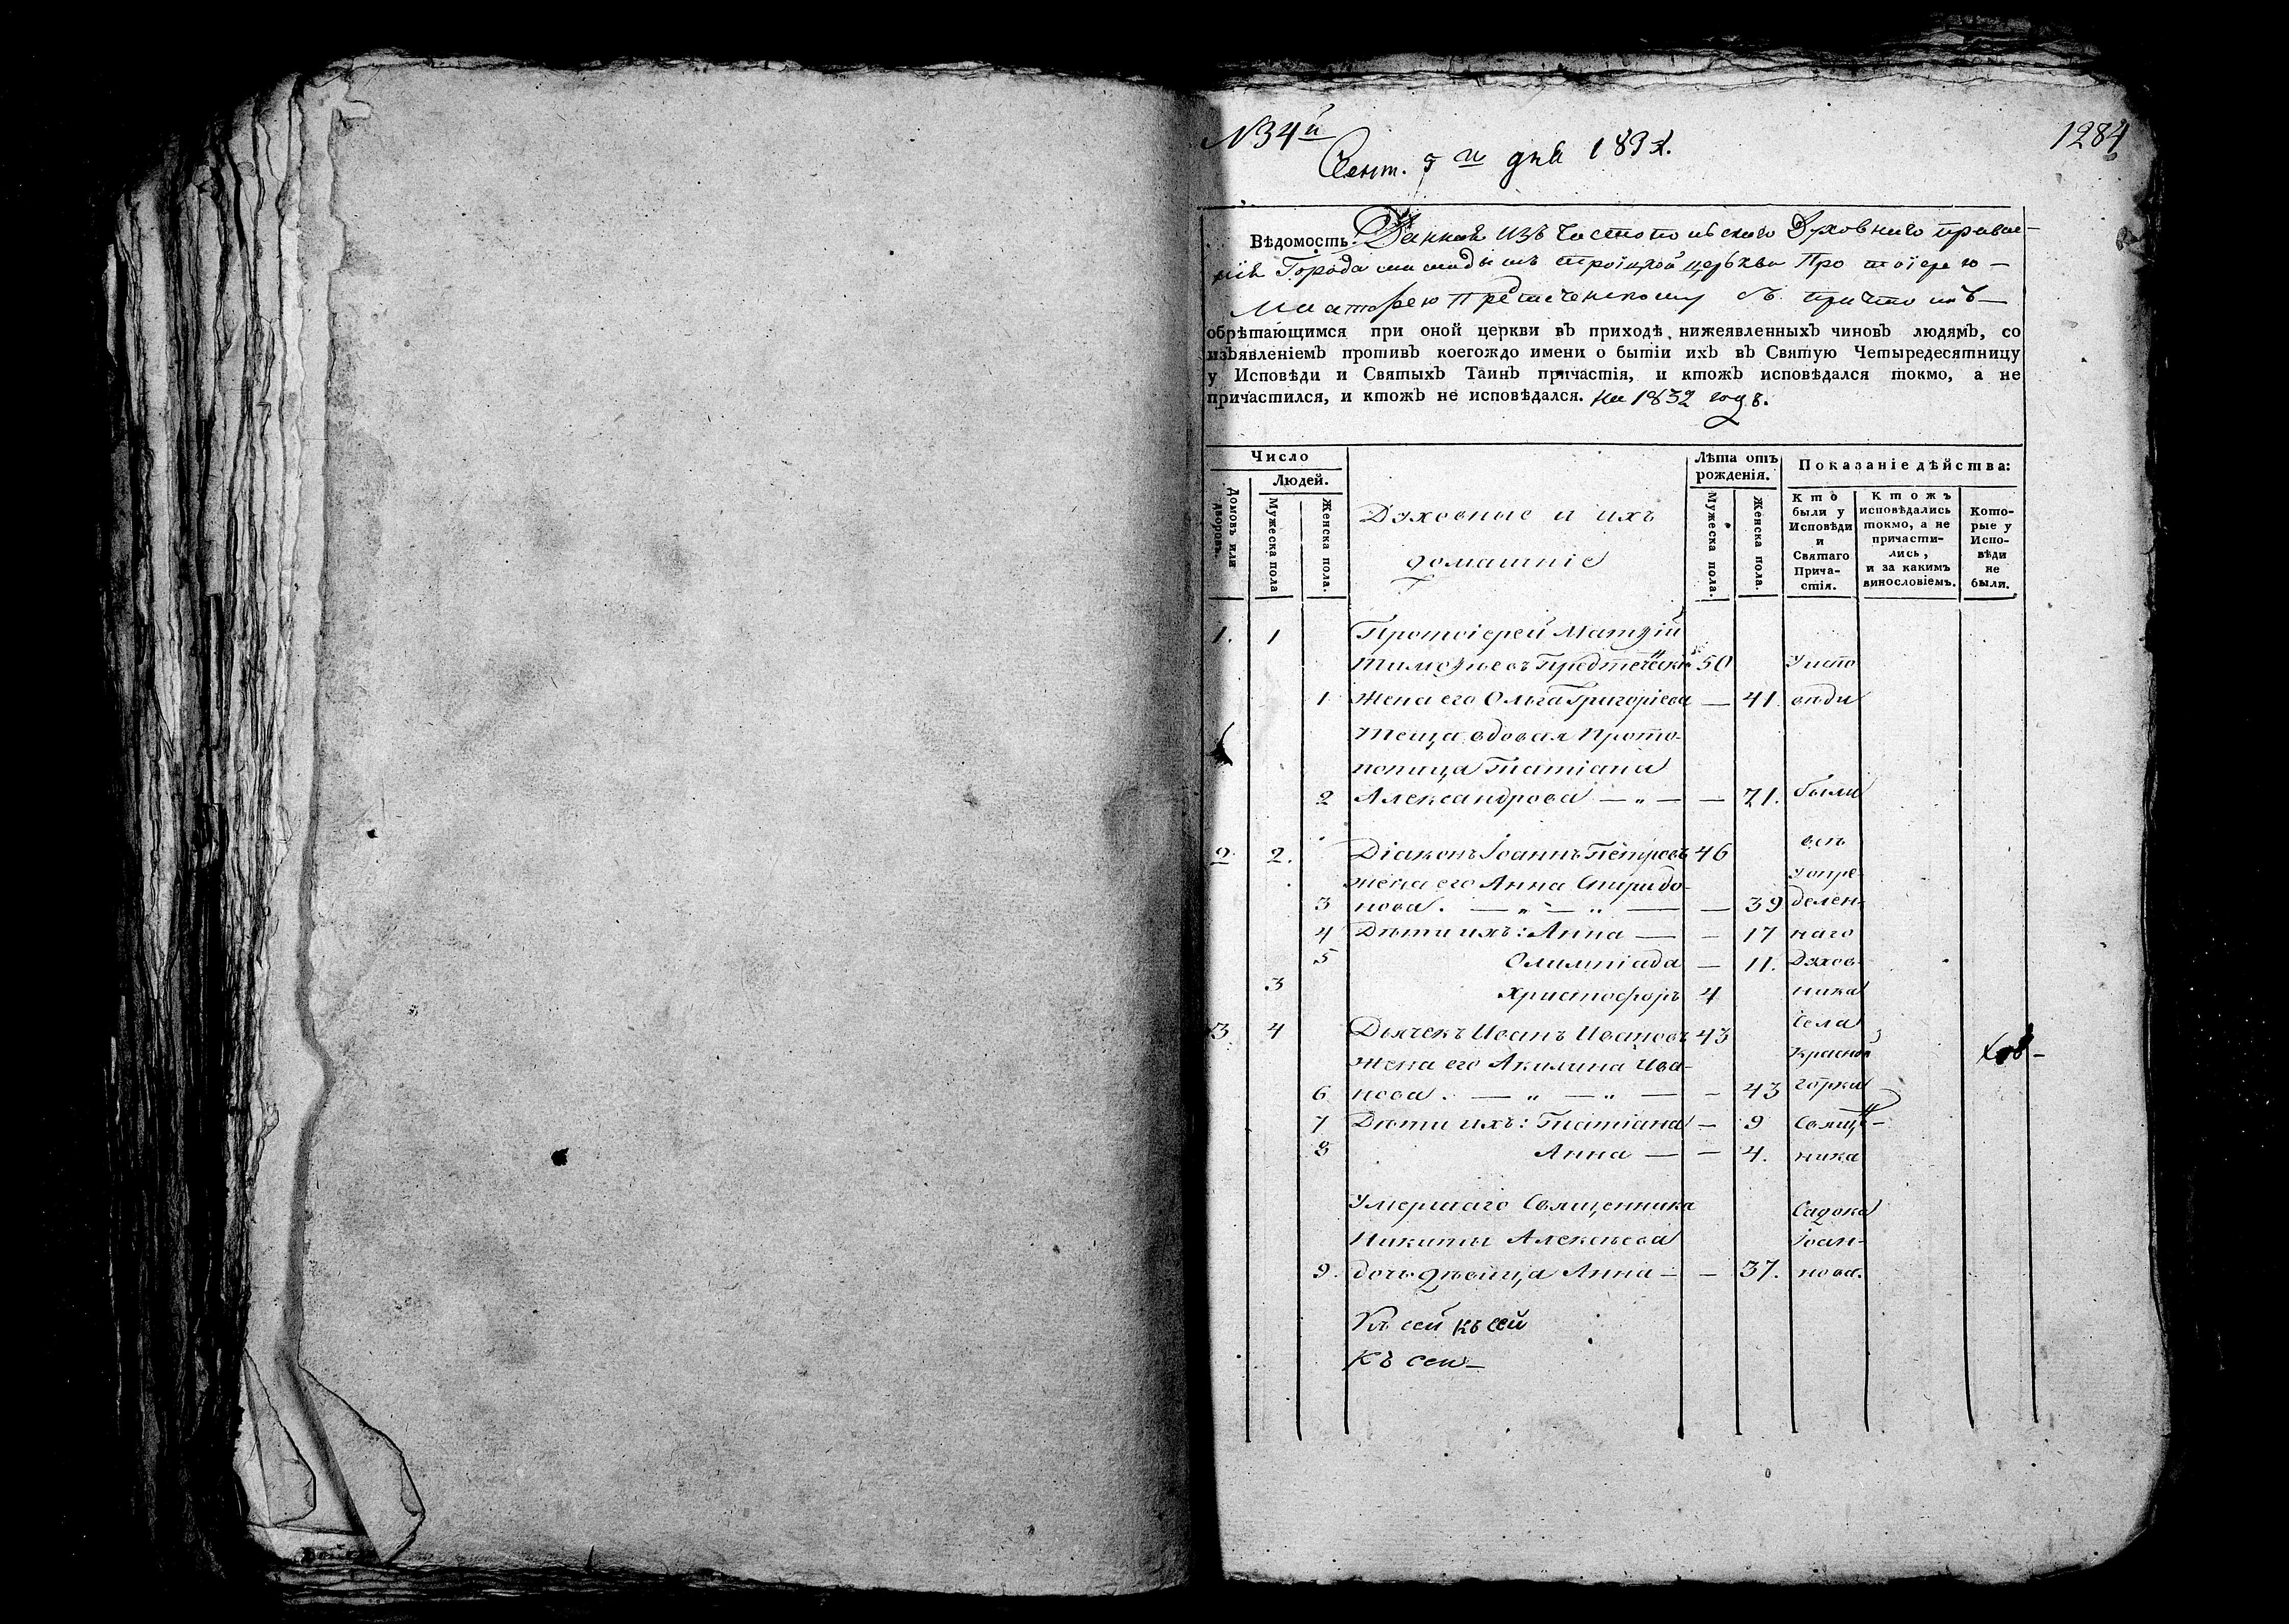 № 34й
1284
Сент. 5 и дня 1832.
Вѣдомость Данная изъ Чистопольскаго Духовнаго правле-
нія Города мамадышъ троицкой церкви Протоіерею
Матфею Предтеченскому съ причтомъ
обрѣтающимся при оной церкви въ приходѣ нижеявленныхъ чиновъ людямъ, со
изъявленіемъ противъ коегождо имени о бытіи ихъ въ Святую Четыредесятницу
у Исповѣди и Святыхъ Таинъ причастія, и ктожъ исповѣдался токмо, а не
причастился, и ктожъ не исповѣдался. на 1832 годъ.
Число
Людей.
Домовъ или дворовъ.
Мужеска пола
Женска пола.
Духовные и ихъ
домашніе
Лѣта отъ рожденія.
Мужеска пола.
Женска пола.
Показаніе дѣйства:
Кто были у Исповѣди и Святаго Прича- стія.
Ктожъ исповѣдались токмо, а не причасти- лись, и за какимъ винословіемъ.
Кото- рые у Испо- вѣди не были.
1. 1 Протоіерей Матѳій
Тимоѳеевъ Предтеченскій 50 У испо
1 Жена его Ольга Григоріева — 41 вѣди
Теща вдовая Прото-
попица Татіана
2 Александрова — „ — — 71. были
вси
2 2. Діаконъ Іоаннъ Петровъ 46
жена его Анна Спиридо- у опре-
3 нова. — „ — „ — — 39 делен-
4 Дѣти ихъ: Анна — — 17 наго
5 Олимпіада — 11. Духов-
3 Христофоръ 4 ника
3 4 Дьячекъ Иванъ Ивановъ 43 села
жена его Акилина Ива- Красной
6 нова. — „ — „ — — 43 горки
7 Дѣти ихъ: Татіана — 9 Свяще-
8 Анна — — 4. ника
Умершаго Священника Садока
Никиты Алексѣева Іоан-
9. дочь девица Анна — — 37. нова.
Къ сей къ сей
Къ сей